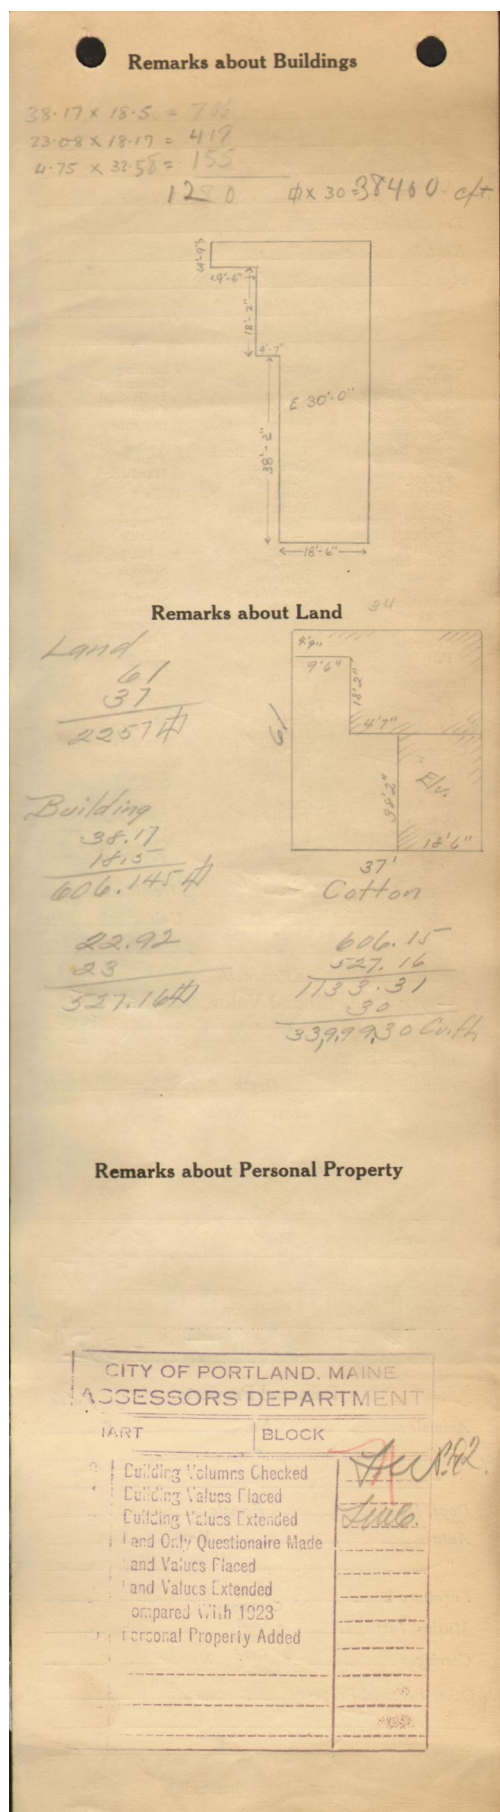 Remarks about Buildings
38.17 x 18.5 = 706
23.08 x 18.17 = 419
4.75 x 32.58 = 155
1280 ⌗ x 30 = 38460 cft
4'-9"
9'-6"
18'-2"
4'-7"
E 30'-0"
38'-2"
18'-6"
Remarks about Land
34
Land
61
37
2257 ⌗
4'9"
9'6"
18'2"
4'7"
61
38'2"
Elv.
18'6"
37'
Cotton
Building
38.17
18.5
606.145 ⌗
22.92
23
527.16 ⌗
606.15
527.16
1133.31
30
33,999.30 Cu.ft
Remarks about Personal Property
CITY OF PORTLAND, MAINE
ASSESSORS DEPARTMENT
HART BLOCK
Building Volumns Checked
Building Values Placed
Building Values Extended
Land Only Questionaire Made
Land Values Placed
Land Values Extended
ompared With 1923
Personal Property Added